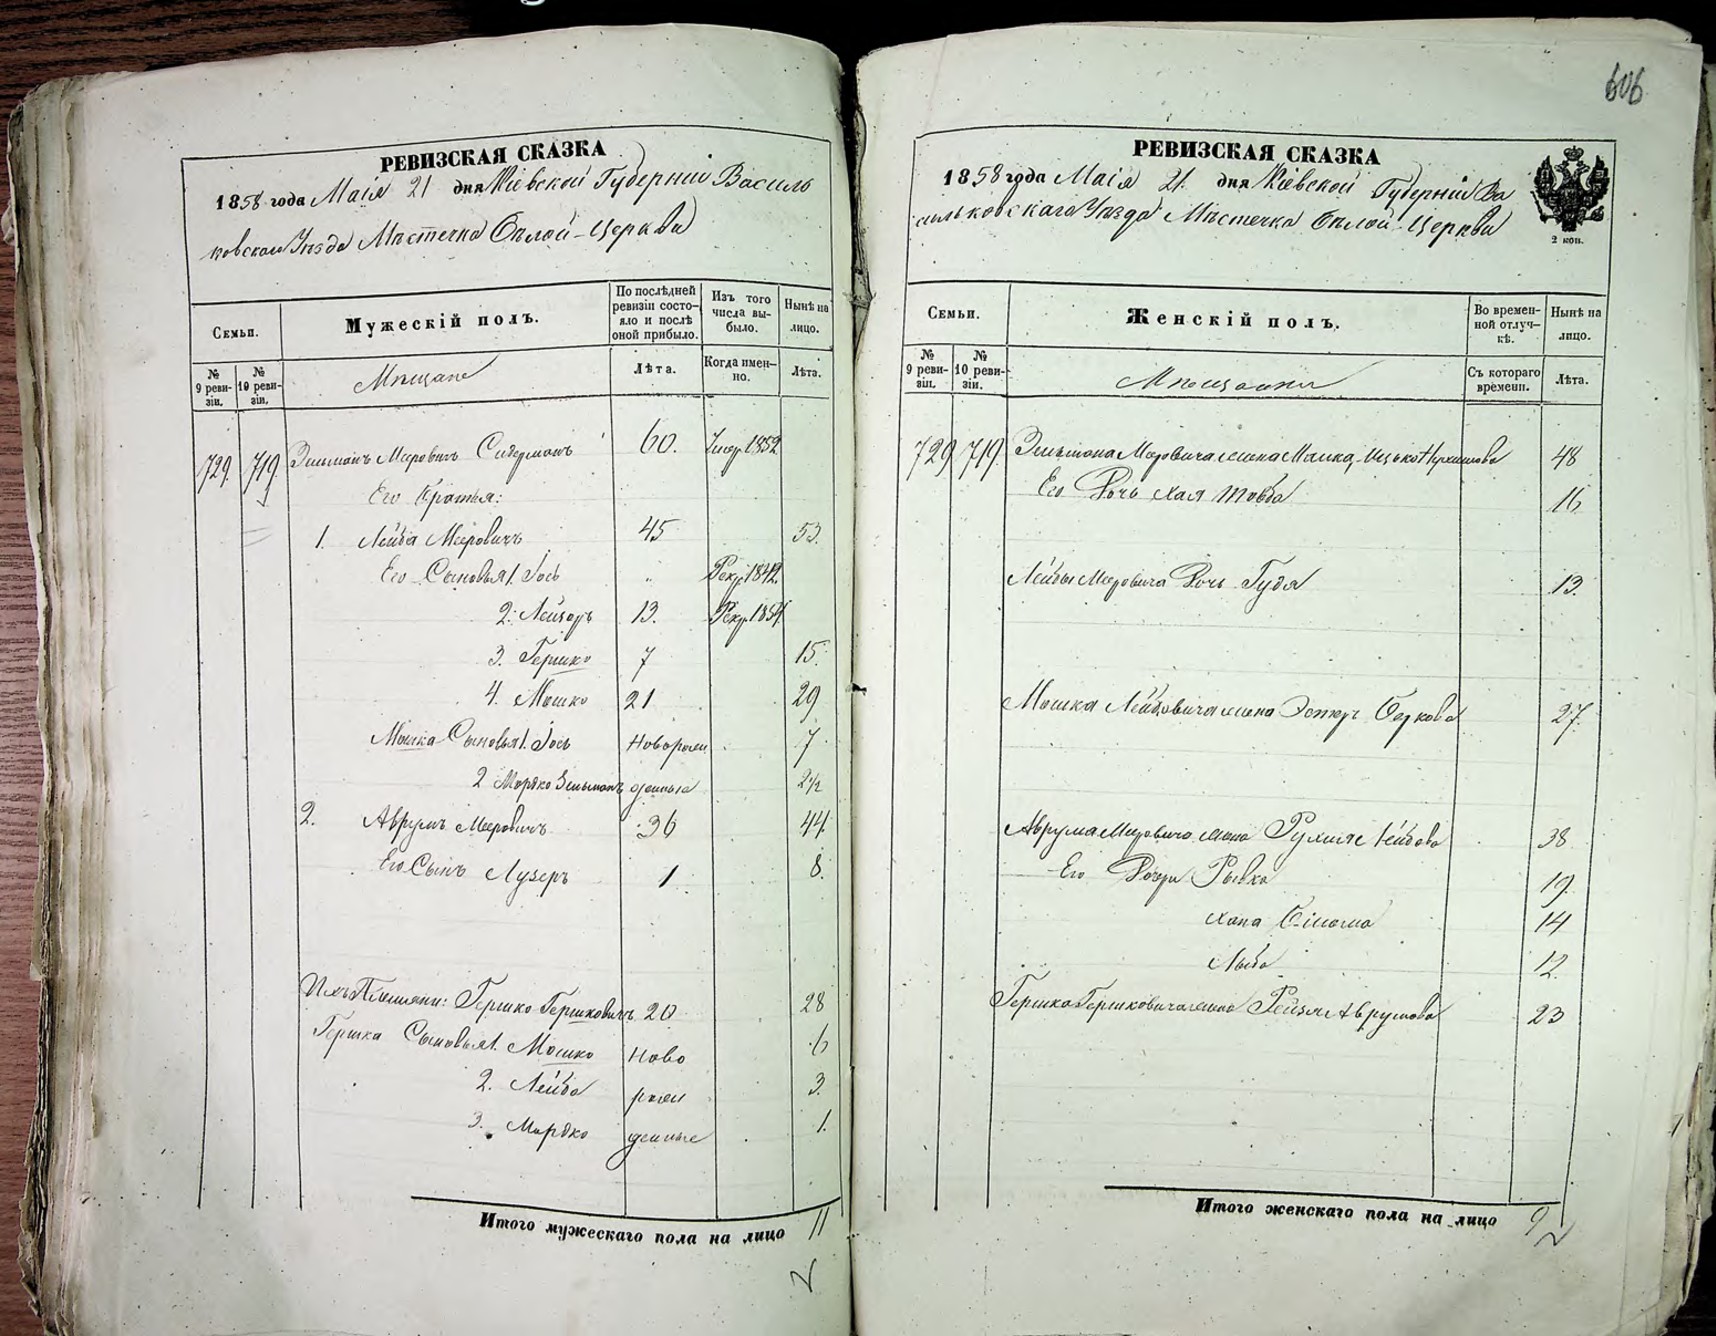 606
РЕВИЗСКАЯ СКАЗКА
1858 года Маія 21 дня Кіевской Губерніи Василь
ковскаго Уезда Мѣстечка Бѣлой-Церкви
Семьи.
Мужескій полъ.
По послѣдней ревизіи состо-яло и послѣ оной прибыло.
Изъ того числа вы-было.
Нынѣ на лицо.
№ 9 реви-зіи.
№ 10 реви-зіи.
Мѣщане
Лѣта.
Когда имен-но.
Лѣта.
729. 719. Зельманъ Меровичъ Сидерманъ 60. Умер 1852
Его Братья:
1. Лейба Меровичъ 45 53.
Его Сыновья 1. Іось " Рекр. 1842
2. Лейзоръ 13. Рекр. 1854
3. Гершко 7 15.
4. Мошко 21 29
Мошка Сыновья 1. Іось новорож 7
2 Мордко Зельманъ денные 2½
2. Аврумъ Меровичъ 36 44.
Его Сынъ Лузеръ 1 8.
Ихъ Племяни: Гершко Гершковичъ 20. 28
Гершка Сыновья 1. Мошко ново 6
2. Лейба рож 3.
3. Мордко денные 1.
Итого мужескаго пола на лицо 11
РЕВИЗСКАЯ СКАЗКА
1858 года Маія 21. дня Кіевской Губерніи Ва
сильковскаго Уезда Мѣстечка Бѣлой-Церкви
2 коп.
Семьи.
Женскій полъ.
Во времен-ной отлуч-кѣ.
Нынѣ на лицо.
№ 9 реви-зіи.
№ 10 реви-зіи.
Мѣщанки
Съ котораго времени.
Лѣта.
729 719. Зельмана Меровича жена Малка 48
Его Дочь Хая Товба 16
Лейбы Меровича Дочь Гудя 13.
Мошка Лейбовича жена Эстеръ Беркова 27.
Аврума Меровича жена Рухля Лейбова 38
Его Дочери Рывка 19.
Хана 14
Либа 12.
Гершка Гершковича жена Рейзя Аврумова 23
Итого женскаго пола на лицо 9